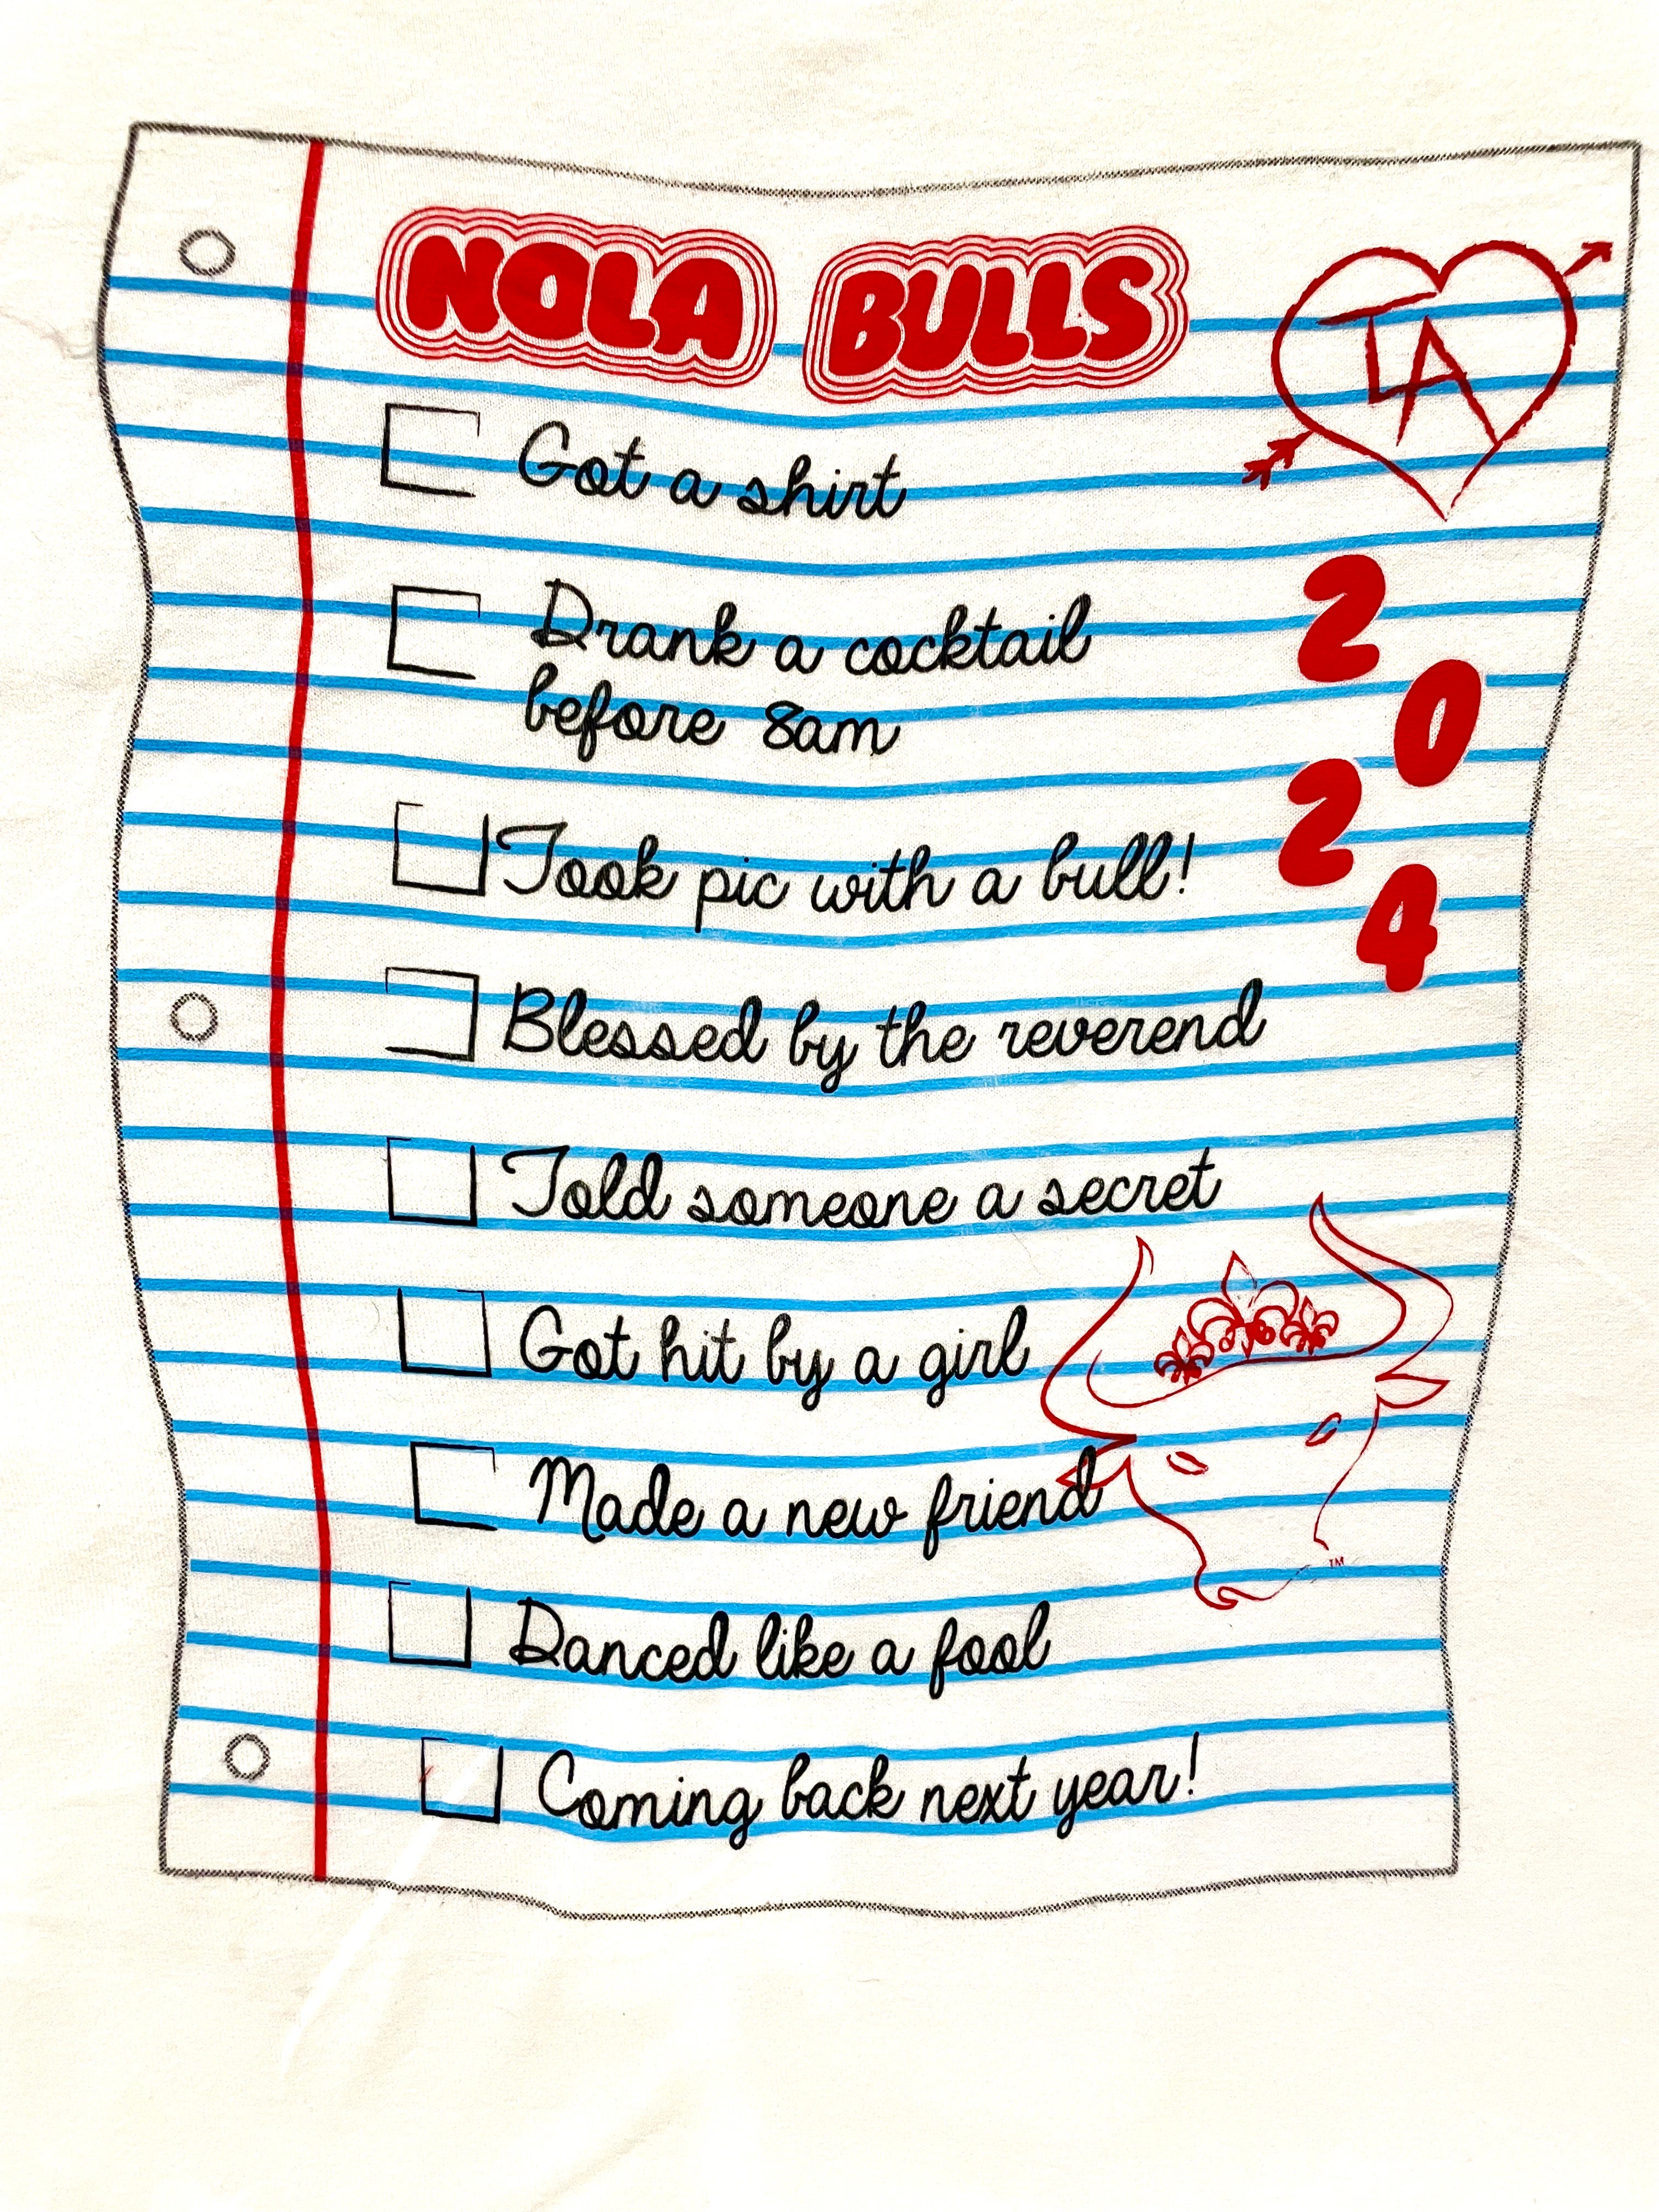 NOLA BULLS
TA
Got a shirt
Drank a cocktail
before 8am
2
0
2
4
Took pic with a bull!
Blessed by the reverend
Told someone a secret
Got hit by a girl
Made a new friend
TM
Danced like a fool
Coming back next year!